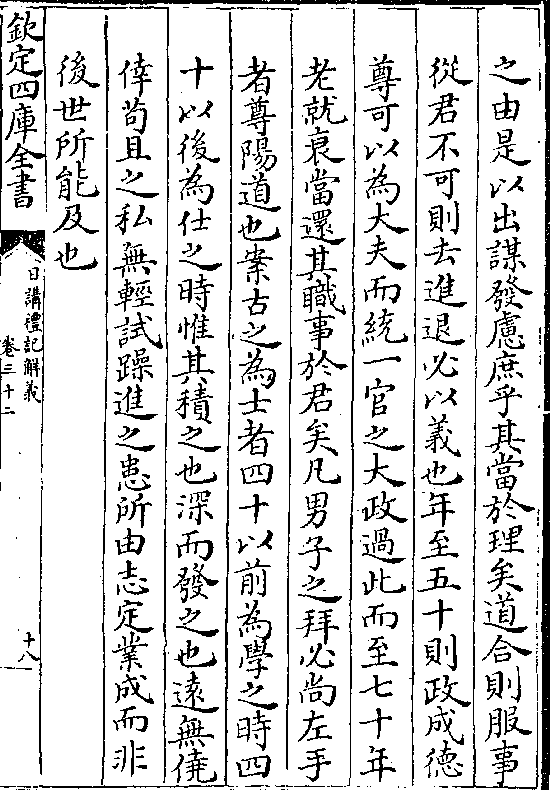 之由是以出謀發慮庶乎其當於理矣道合則服事
從君不可則去進退必以義也年至五十則政成德
尊可以為大夫而統一官之大政過此而至七十年
老就衰當還其職事於君矣凡男子之拜必尚左手
者尊陽道也案古之為士者四十以前為學之時四
十以後為仕之時惟其積之也深而發之也遠無僥
倖苟且之私無輕試躁進之患所由志定業成而非
後世所能及也
欽定四庫全書
日講禮記解義
卷三十二
十八